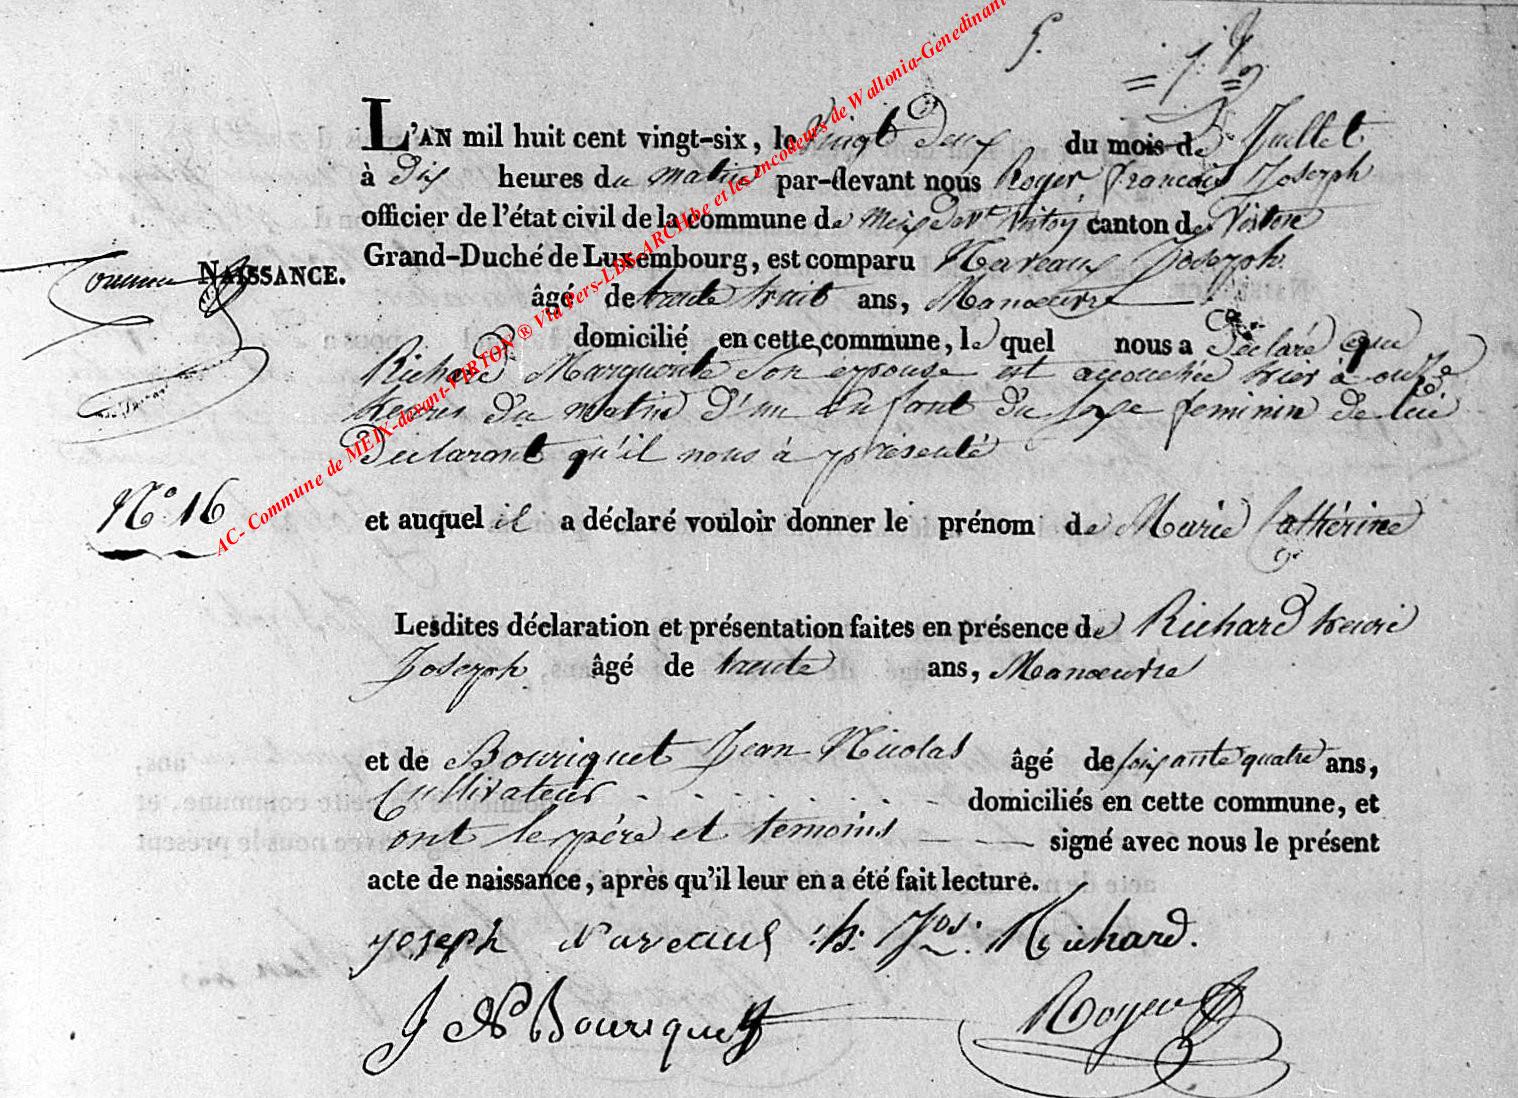 L'AN mil huit cent vingt-six, le vingt deux du mois de Juillet
à Dix heures du matin par-devant nous Royer françois Joseph
officier de l'état civil de la commune de Meix devt Virton canton de Virton
Grand-Duché de Luxembourg, est comparu Naveaux Joseph
NAISSANCE.
âgé de trente huit ans, Manœuvre
domicilié en cette commune, le quel nous a Déclaré que
Richard Marguerite Son épouse est accouchée hier à onze
heures du matin d'un enfant du sexe feminin de lui
Déclarant qu'il nous à présenté
No. 16
et auquel il a déclaré vouloir donner le prénom de Marie Cathérine
Lesdites déclaration et présentation faites en présence de Richard henri
Joseph âgé de trente ans, Manœuvre
et de Bouriquet Jean Nicolas âgé de soixante quatre ans,
Cultivateur domiciliés en cette commune, et
ont le père et temoins signé avec nous le présent
acte de naissance, après qu'il leur en a été fait lecture.
Joseph Naveaux h. Jos. Richard.
J N Bouriquet Royer
AC- Commune de MEIX-devant-VIRTON ® Via vers-LDS-ARCH.be et les encodeurs de Wallonia-Genedinant